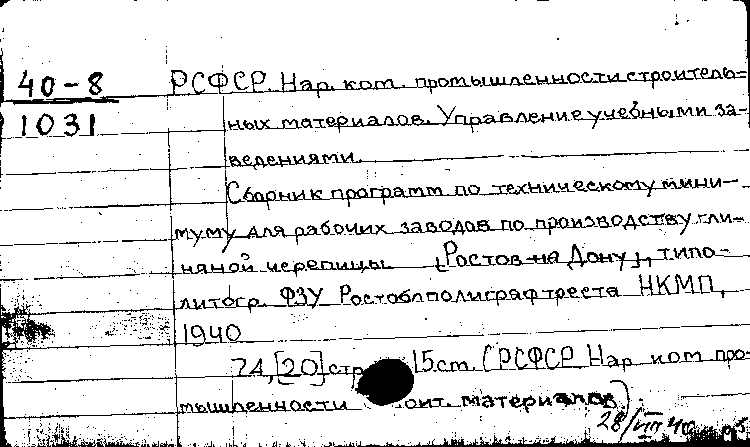 40-8 РСФСР. Нар. ком. промышленности строитель-
1031 ных материалов. Управление учебными за-
ведениями.
Сборник программ по техническому мини-
муму для рабочих заводов по производству гли-
няной черепицы [Ростов-на Дону], типо-
литогр. ФЗУ Ростоблполиграфтреста НКМП,
1940
74, [20] стр 15 см. (РСФСР Нар ком про-
мышленности оит. материалов)
28/VIII 40